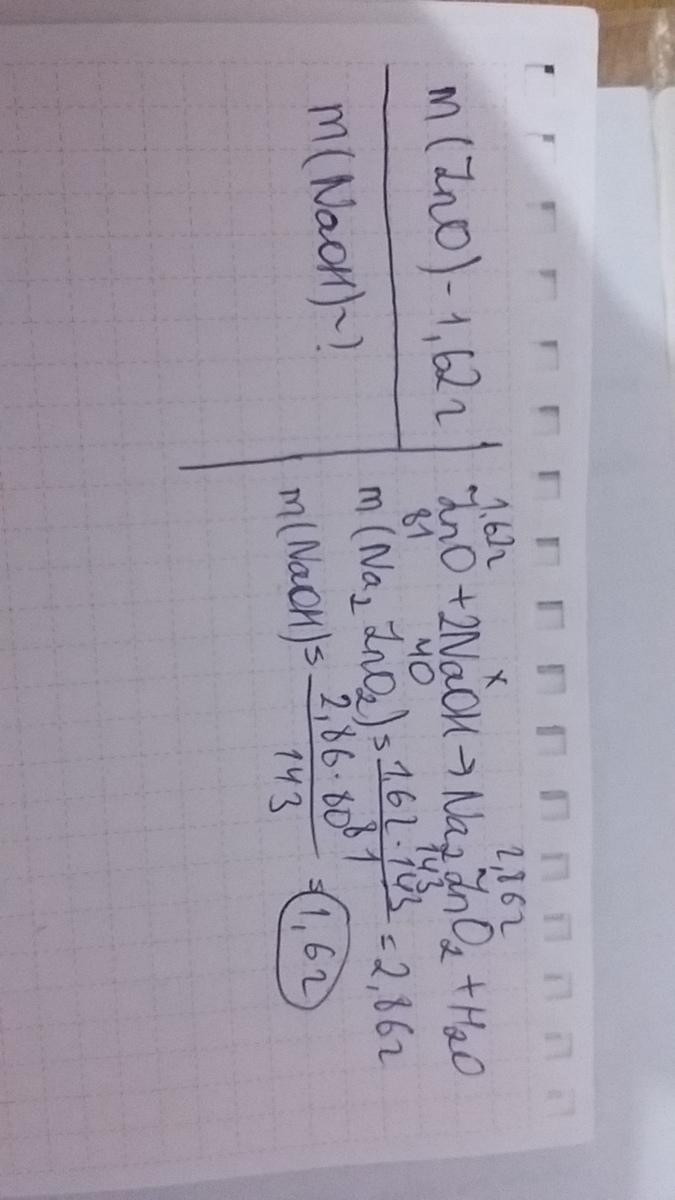 m(ZnO)-1,62г
m(NaOH)~?
1,62г x 2,86г
ZnO+2NaOH→Na₂ZnO₂+H₂O
81 40 143
m(Na₂ZnO₂)=1,62·143/81=2,86г
m(NaOH)=2,86·80/143=1,6г